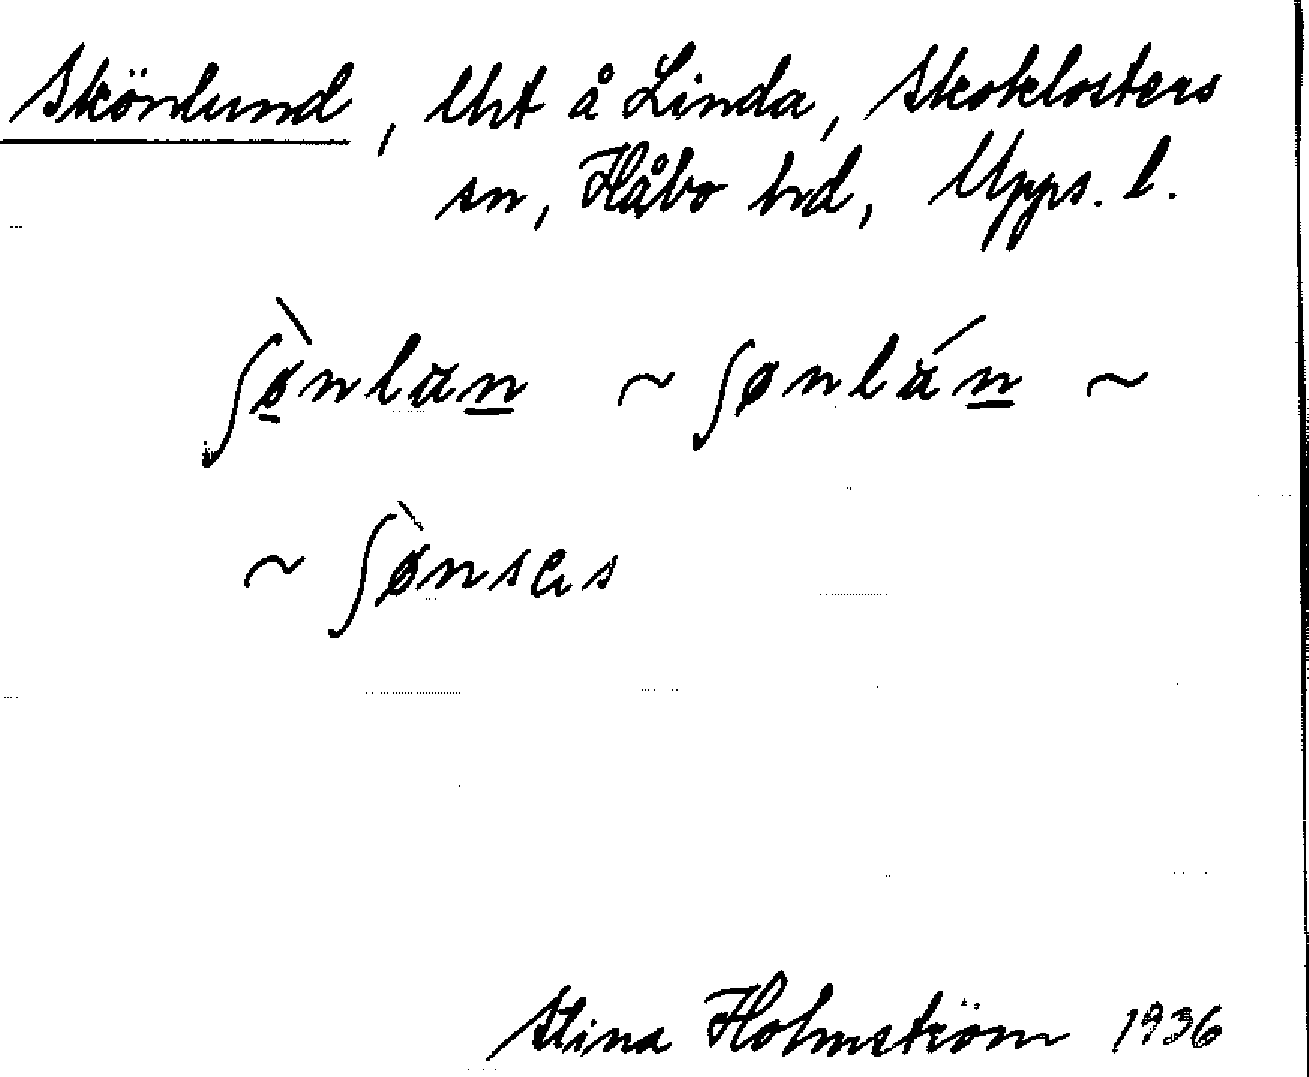 Skönlund, lht å Linda, Skoklosters
sn, Håbo hd, Upps. l.
ʃø̀nlan ~ ʃønlán ~
~ ʃø̀nsas
Stina Holmström 1936